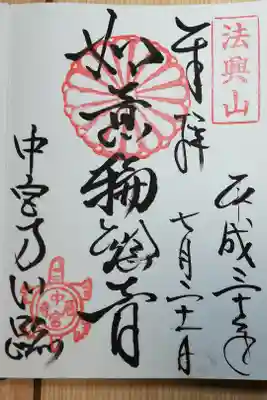 法興山
奉拝
平成三十年
七月二十一日
如意輪観音
中宮寺門跡